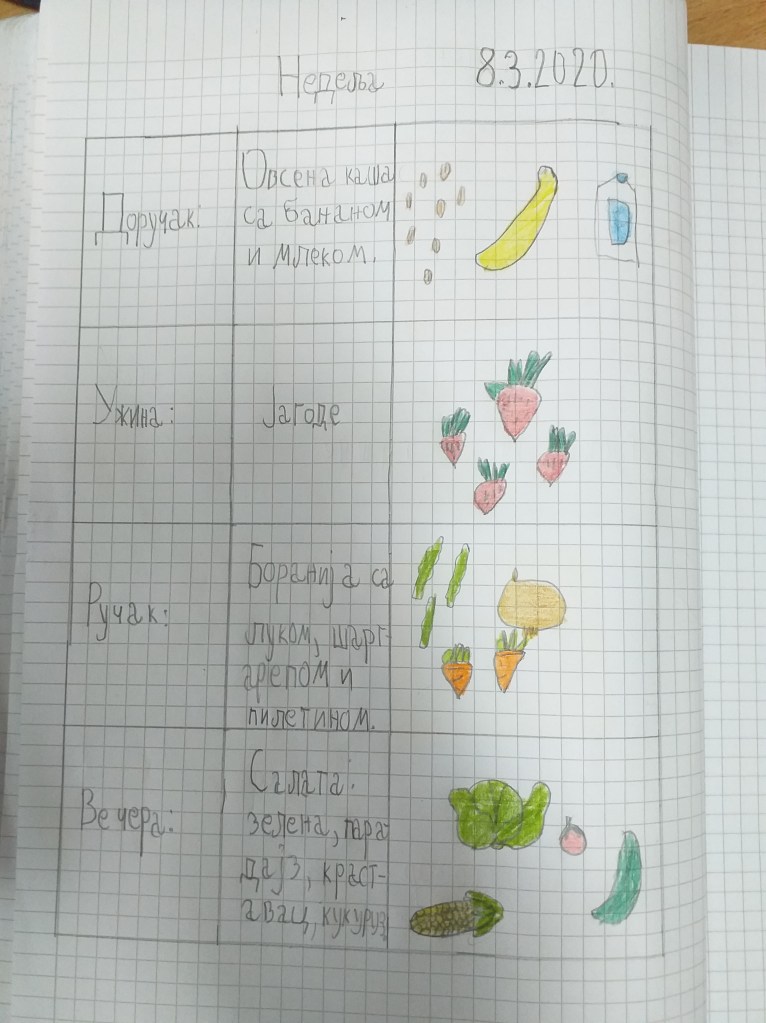 Недеља 8.3.2020.
Доручак:
Овсена каша
са бананом
и млеком.
Ужина:
Јагоде
Ручак:
Боранија са
луком, шарг-
арепом и
пилетином.
Вечера:
Салата:
зелена, пара-
дајз, краст-
авац, кукуруз